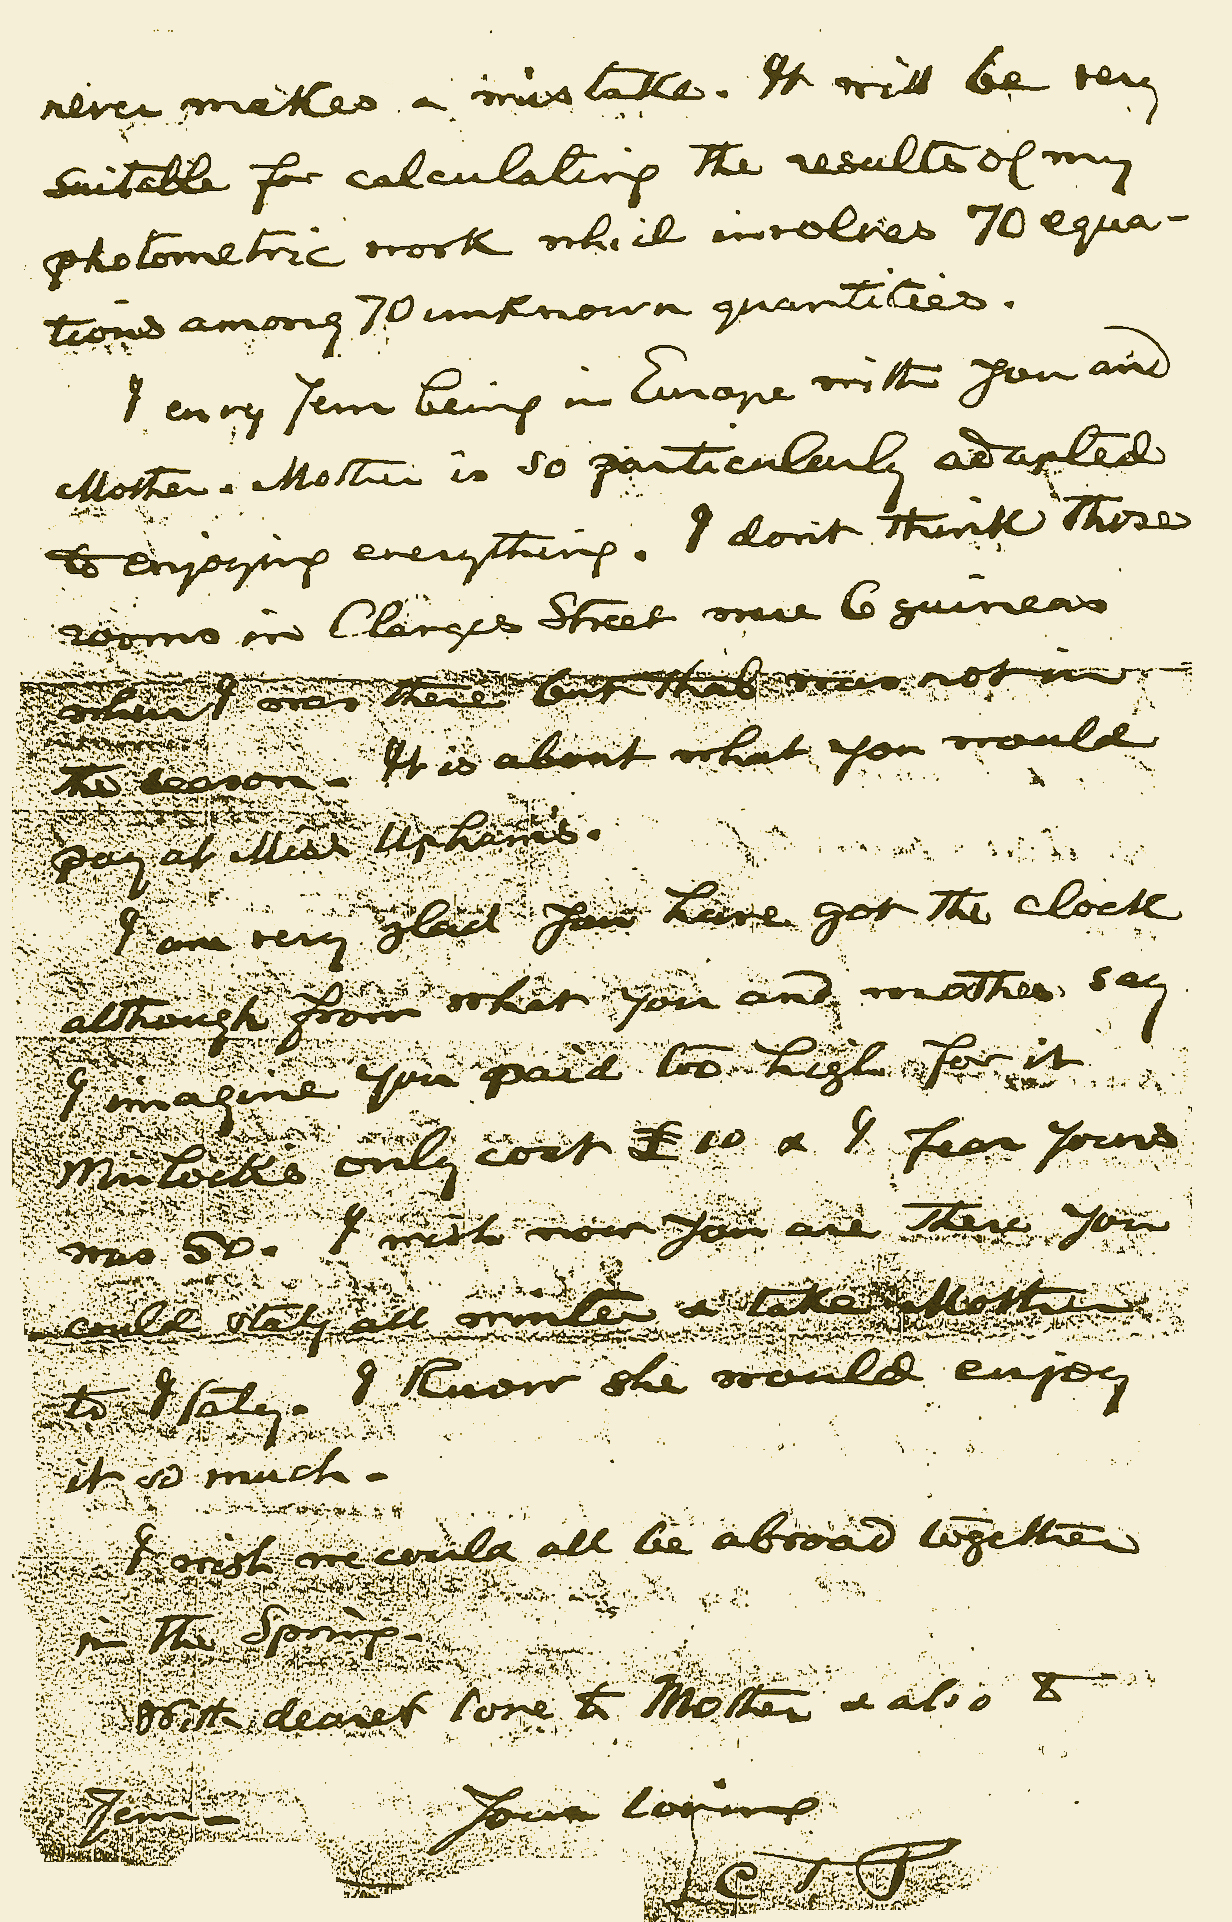 never makes a mistake. It will be very
suitable for calculating the results of my
photometric work which involves 70 equa-
tions among 70 unknown quantities.
I envy Jem being in Europe with you and
Mother. Mother is so particularly adapted
to enjoying everything. I don't think those
rooms in Clarges Street were 6 guineas
when I was there but that was not in
the season. It is about what you would
pay at Miss Upham's.
I am very glad you have got the clock
although from what you and mother say
I imagine you paid too high for it
only cost £10 & I fear yours
was 50. I wish now you are there you
could stay all winter & take Mother
to Italy. I know she would enjoy
it so much.
I wish we could all be abroad together
in the Spring.
With dearest love to Mother & also to
Jem. Your loving
C T P